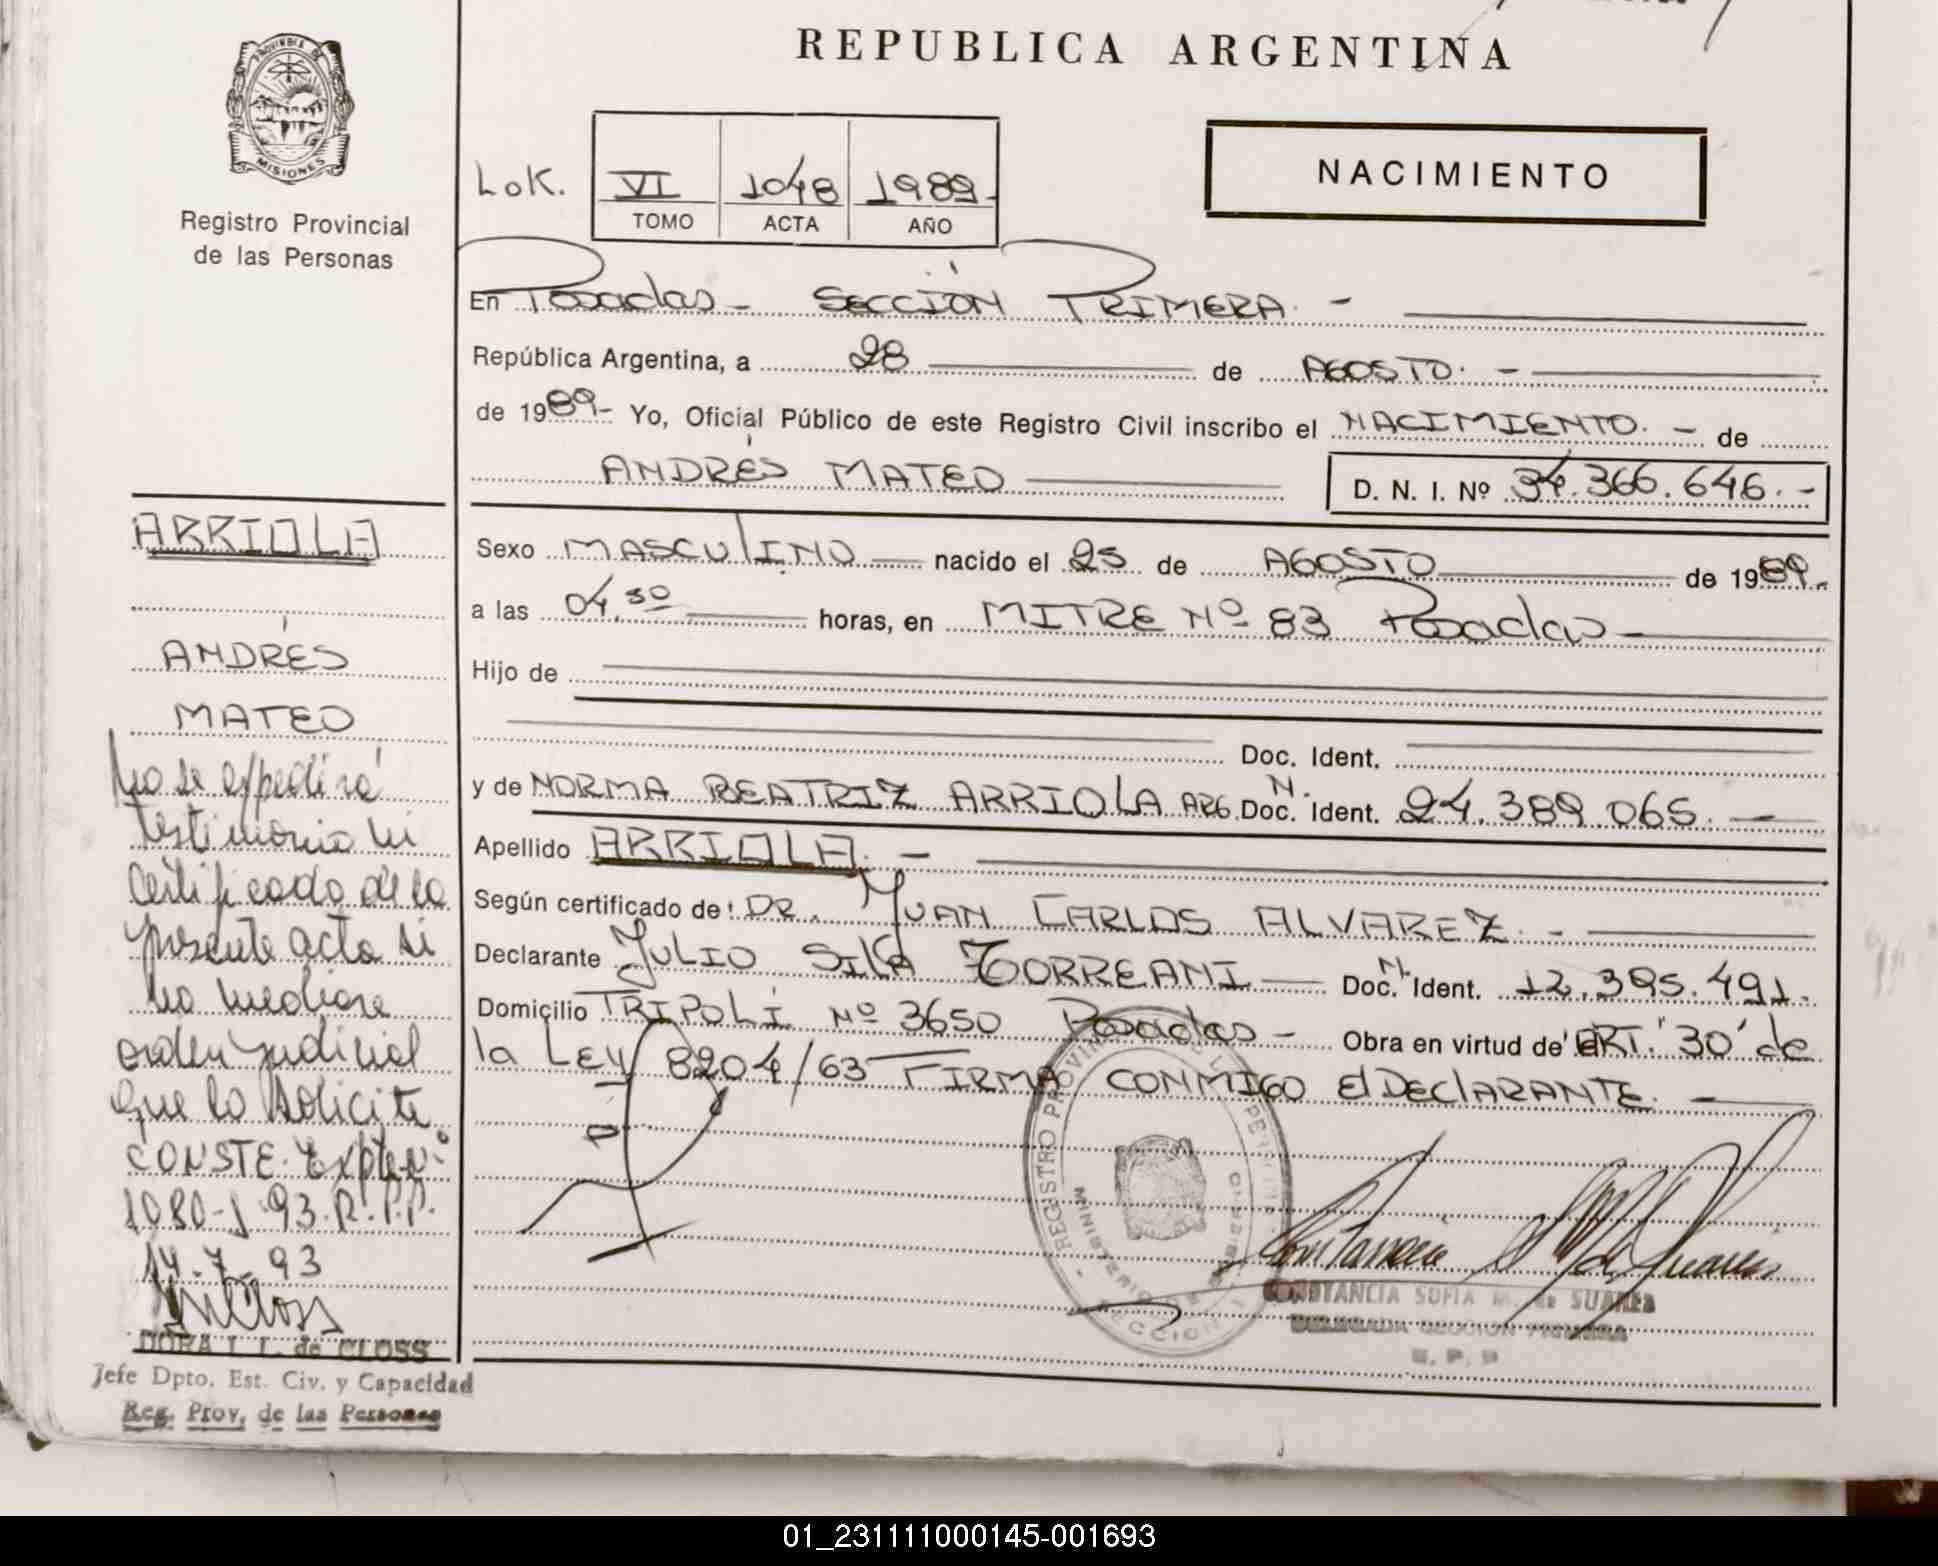 REPUBLICA ARGENTINA
PROVINCIA DE
MISIONES
Registro Provincial
de las Personas
LoK.
VI 1048 1989.-
TOMO ACTA AÑO
NACIMIENTO
En Posadas - SECCIÓN PRIMERA. -
República Argentina, a 28 de AGOSTO. -
de 1989- Yo, Oficial Público de este Registro Civil inscribo el NACIMIENTO. - de
ANDRÉS MATEO D. N. I. Nº 34.366.646.-
Sexo MASCULINO nacido el 25 de AGOSTO de 1989.
a las 04.30 horas, en MITRE Nº 83 Posadas-
Hijo de
Doc. Ident.
y de NORMA BEATRIZ ARRIOLA ARG. Doc. N. Ident. 24.389.065. -
Apellido ARRIOLA. -
Según certificado de: DR. JUAN CARLOS ALVAREZ. -
Declarante JULIO SILVA TORREANI Doc. N. Ident. 12.395.491.
Domicilio TRIPOLI Nº 3650 Posadas - Obra en virtud de ART. 30 de
la LEY 8204/63 FIRMA CONMIGO El DECLARANTE. -
ARRIOLA
ANDRÉS
MATEO
No se expedirá
testimonio ni
certificado de la
presente acta si
no mediare
orden judicial
que lo solicite
CONSTE. Expte. Nº
1080-J-93.R.P.P.
14.7.93
DORA I. L. de CLOSS
Jefe Dpto. Est. Civ. y Capacidad
Reg. Prov. de las Personas
REGISTRO PROVINCIAL DE LAS PERSONAS
MINISTERIO DE
SECCION
CONSTANCIA SOFIA M. de SUAREZ
DELEGADA SECCION PRIMERA
R. P. P
01_231111000145-001693